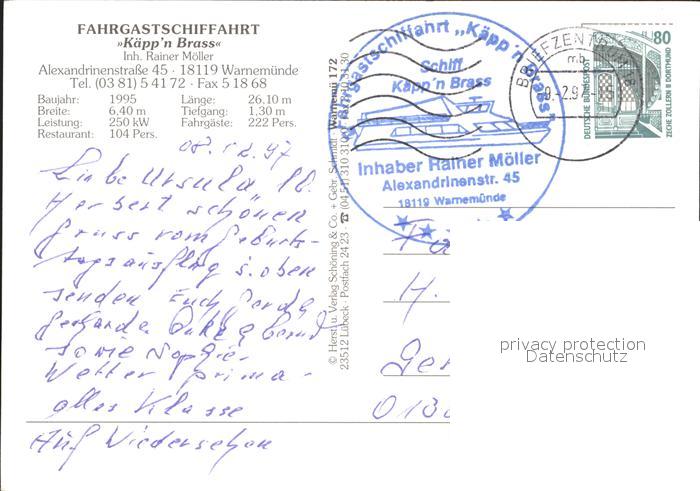 FAHRGASTSCHIFFAHRT
»Käpp'n Brass«
Inh. Rainer Möller
Alexandrinenstraße 45 · 18119 Warnemünde
Tel. (03 81) 5 41 72 · Fax 5 18 68
Baujahr: 1995 Länge: 26,10 m
Breite: 6,40 m Tiefgang: 1,30 m
Leistung: 250 kW Fahrgäste: 222 Pers.
Restaurant: 104 Pers.
08.12.97
Liebe Ursula
Herbert schönen
Gruss vom Geburts-
tagsausflug s. oben
senden Euch Gerda
Bernd
sowie
Wetter prima -
alles Klasse
Auf Wiedersehen
© Herst. u. Verlag Schöning & Co. + Gebr. Schmidt
23512 Lübeck · Postfach 24 23 ·
Warnemü 172
Fahrgastschiffahrt „Käpp'n Brass"
Schiff
Käpp'n Brass
Inhaber Rainer Möller
Alexandrinenstr. 45
18119 Warnemünde
BRIEFZENTRUM
mb
80
DEUTSCHE BUNDESPOST
ZECHE ZOLLERN II DORTMUND
H.
privacy protection
Datenschutz